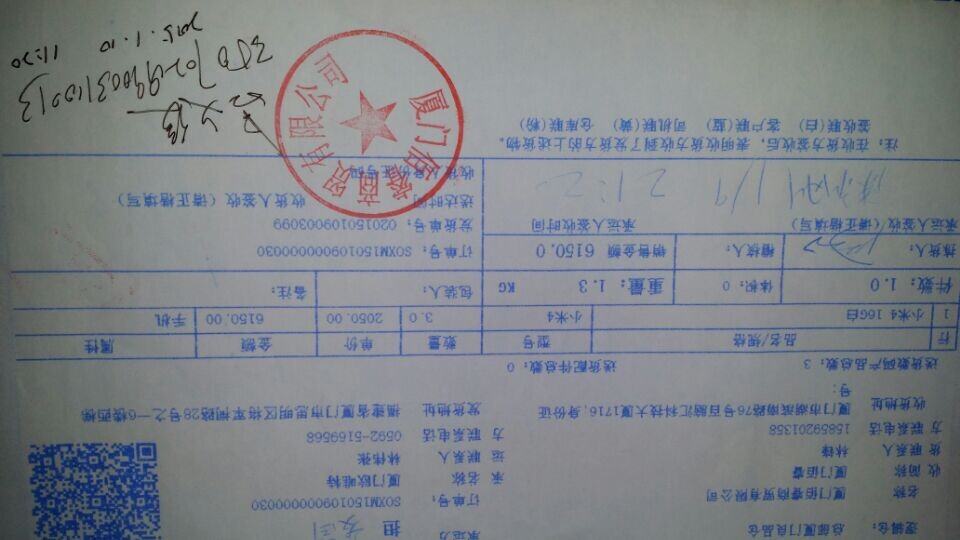 逻辑仓: 总部厦门良品仓
承运方
担
名称 厦门佰睿商贸有限公司
订单号: SOXM150109000000030
收 简称 厦门佰睿
承 名称 厦门欧唯特
货 联系人 林锋
运 联系人 林伟张
方 联系电话 15859201358
方 联系电话 0592-5169568
收货地址 厦门市湖滨南路76号百脑汇科技大厦1716,身份证号:
发货地址 福建省厦门市思明区将军祠路28号之一6楼西梯
送货数码产品总数: 3 送货配件总数: 0
行 品名/规格 型号 数量 单价 金额 属性
1 小米4 16G白 小米4 3.0 2050.00 6150.00 手机
件数: 1.0 体积: 0 重量: 1.3 KG 包装人: 备注:
拣货人: 稽核人: 销售金额 6150.0
订单号: SOXM150109000000030
发货单号: 0201501090003099
承运人签收人/(请正楷填写) 承运人签收时间
送达时间 收货人签收(请正楷填写)
1/9 21:2
收货人身份证号码
注: 在收货方签收后,表明收货方收到了发货方的上述货物。
签收联(白) 客户联(蓝) 司机联(黄) 仓库联(粉)
厦门佰睿商贸有限公司
2015.1.10 11:20